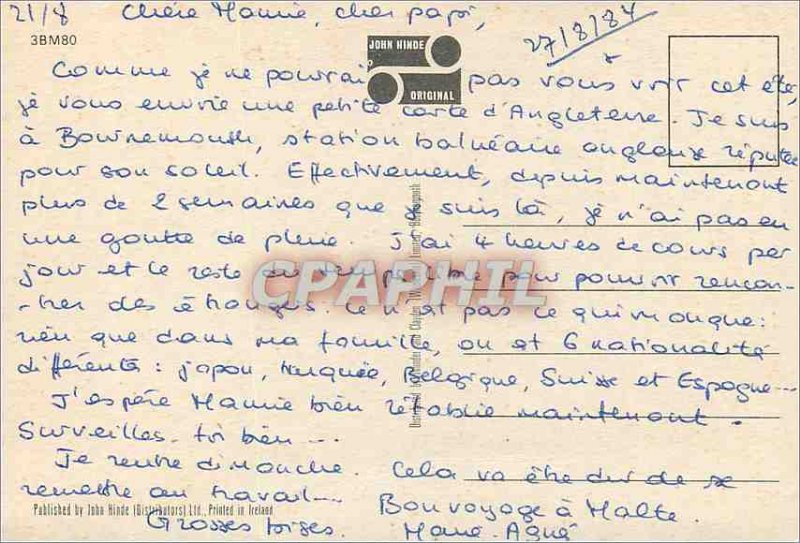 21/8 Chère Mamie, cher papi,
27/8/84
3BM80
JOHN HINDE
ORIGINAL
Comme je ne pourrai pas vous voir cet été,
je vous envie une petite carte d'Angleterre. Je suis
à Bournemouth, station balnéaire anglaise réputée
pour son soleil. Effectivement, depuis maintenant
plus de 2 semaines que je suis là, je n'ai pas eu
une goutte de pluie. J'ai 4 heures de cours par
jour et le reste du temps libre pour pouvoir rencon-
-trer des étrangers. Ce n'est pas ce qui manque:
rien que dans ma famille, on est 6 nationalité
différents: japon, turquée, Belgique, Suisse et Espagne...
J'espère Mamie bien rétablie maintenant.
Surveilles-toi bien...
Je rentre dimanche. Cela va être dur de se
remettre au travail... Bon voyage à Malte.
Published by John Hinde (Distributors) Ltd., Printed in Ireland
Grosses bises.
CPAPHIL